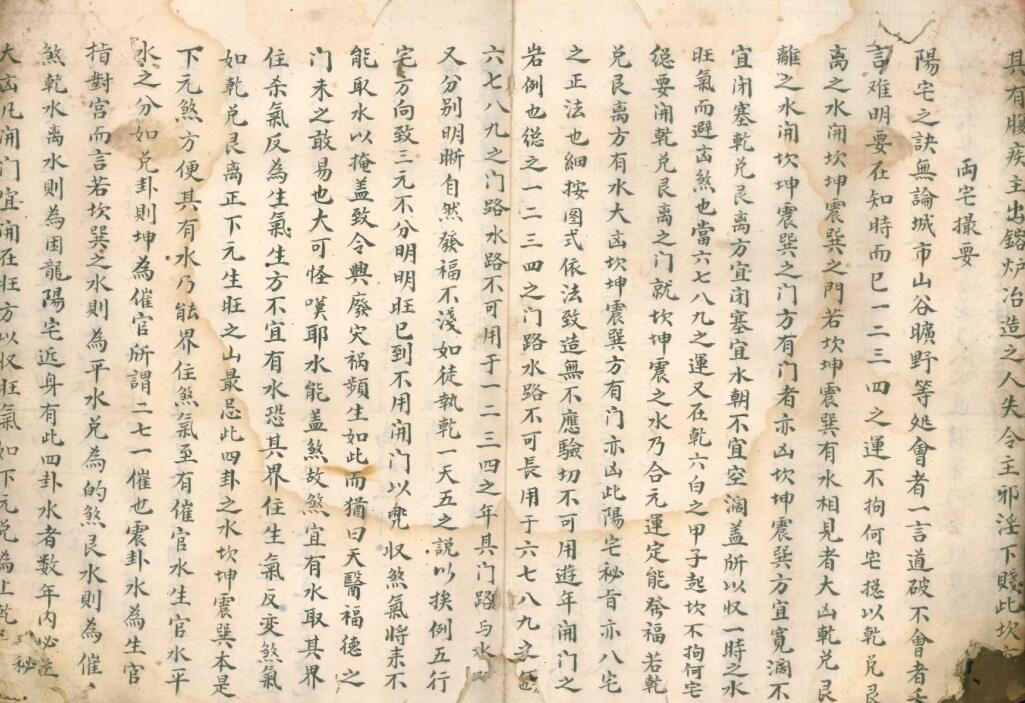 其有腹疾主出鎔炉冶造之人失令主邪淫下賤此坎
両宅撮要
陽宅之訣無論城市山谷曠野等処會者一言道破不會者千
言难明要在知時而已一二三四之運不拘何宅揔以乾兑艮
离之水開坎坤震巽之門若坎坤震巽有水相見者大凶乾兑艮
離之水開坎坤震巽之门方有门者亦凶坎坤震巽方宜寬濶不
宜闭塞乾兑艮离方宜闭塞宜水朝不宜空濶盖所以収一時之水
旺氣而避凶煞也當六七八九之運又在乾六白之甲子起坎不拘何宅
總要開乾兑艮离之门就坎坤震之水乃合元運定能發福若乾
兑艮离方有水大凶坎坤震巽方有门亦凶此陽宅秘旨亦八宅
之正法也細按图式依法致造無不應驗切不可用遊年開门之
岩例也總之一二三四之门路水路不可長用于六七八九之
六七八九之门路水路不可用于一二三四之年其门路与水
又分别明晰自然發福不淺如徒執乾一天五之説以挨例五行
宅方向致三元不分明明旺已到不用開门以兜収煞氣将来不
能取水以掩盖致令興廢灾祸頻生如此而猶曰天醫福德之
门未之敢易也大可怪嘆耶水能盖煞故煞宜有水取其界
住杀氣反為生氣生方不宜有水恐其界住生氣反变煞氣
如乾兑艮离正下元生旺之山最忌此四卦之水坎坤震巽本是
下元煞方便其有水乃能界住煞氣至有催官水生官水平
水之分如兑卦則坤為催官所謂二七一催也震卦水為生官
指對宫而言若坎巽之水則為平水兑為的煞艮水則為催、
煞乾水离水則為困龍陽宅近身有此四卦水者数年内必
大凶凡開门宜開在旺方以収旺氣如下元兑為上乾
秘